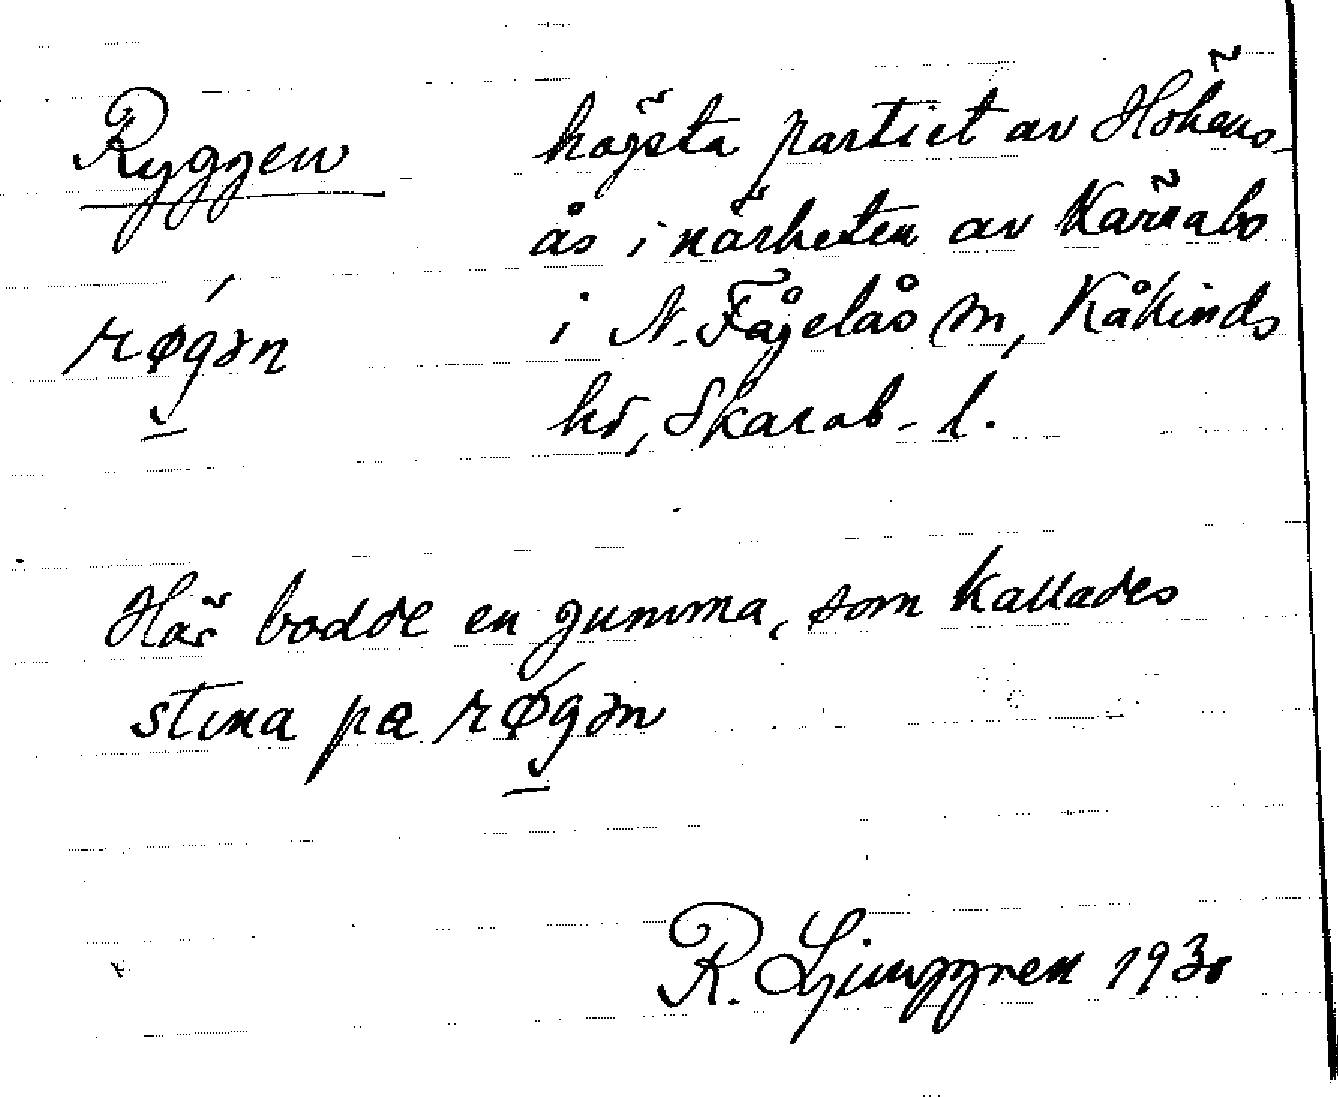 Ryggen
røgən
högsta partiet av Hökens-
ås i närheten av Kärrabo
i N. Fågelås sn, Kåkinds
hd, Skarab. l.
Här bodde en gumma, som kallades
stina pa røgən
R. Ljunggren 1930